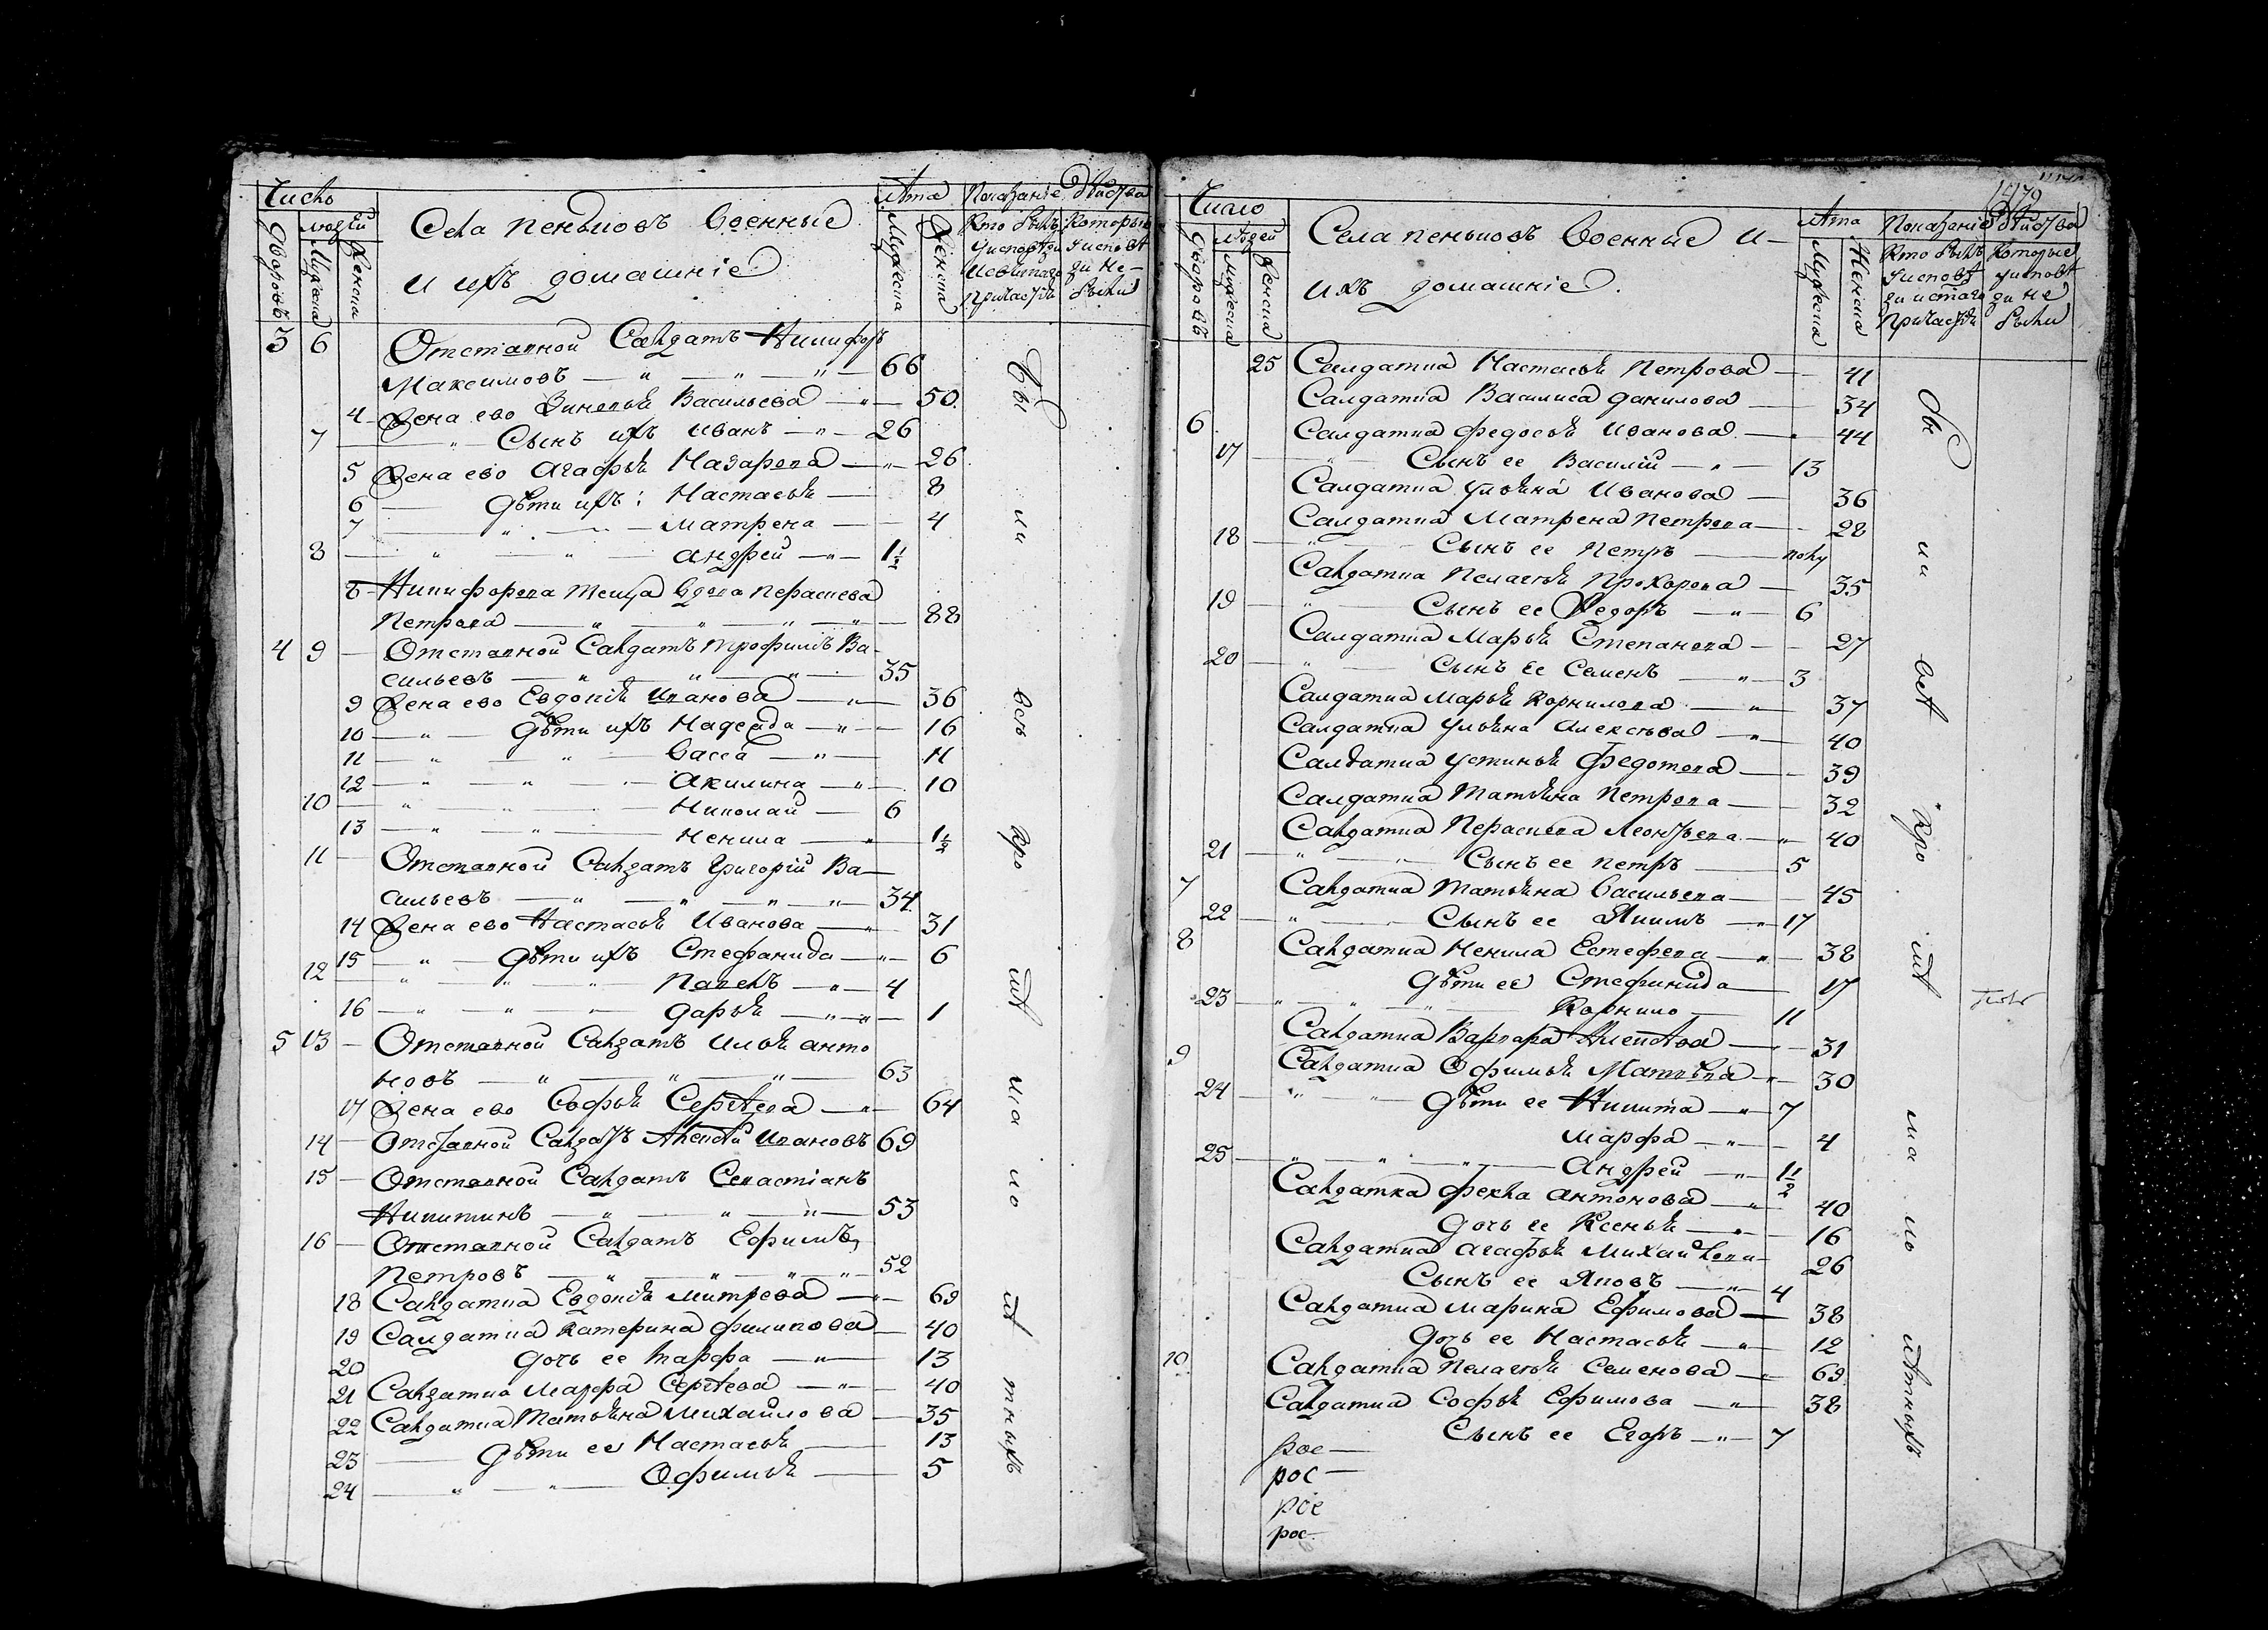 Число
Лѣта Показанiе Дѣйства
людей
Села пеньковъ военные
Кто былъ Которыя
Дворовъ Мужеска Женска
Мужеска Женска
и ихъ домашнiе
причастiи были
3 6 Отставной Салдатъ Никифоръ
Максимовъ 66
4 Жена ево Зиновья Васильева 50
7 Сынъ ихъ Иванъ 26
5 Жена ево Агафья Назарова 26
6 Дѣти ихъ: Настасья 8
7 Матрена 4
8 Андрей 1½
8 Никифорова теща вдова Перасцева
Петрова 88
4 9 Отставной Салдатъ Трофимъ Ва-
сильевъ 35
9 Жена ево Евдокiя Иванова 36
10 Дѣти ихъ Надежда 16
11 Васса 11
12 Акилина 10
10 Николай 6
13 Ненила 1½
11 Отставной Салдатъ Григорiй Ва-
сильевъ 34
14 Жена ево Настасья Иванова 31
15 Дѣти ихъ Стефанида 6
12 Павелъ 4
16 Дарья 1
5 13 Отставной Салдатъ Илья Анто
новъ 63
17 Жена ево Софья Сергѣева 64
14 Отставной Салдатъ Алексѣй Ивановъ 69
15 Отставной Салдатъ Севастiанъ
Никитинъ 53
16 Отставной Салдатъ Ефимъ
Петровъ 52
18 Салдатка Евдокiя Митрева 69
19 Салдатка Катерина Филипова 40
20 Дочь ее Марфа 13
21 Салдатка Марфа Сергѣева 40
22 Салдатка Татьяна Михайлова 35
23 Дѣти ее Настасья 13
24 Офимья 5
Бы ли всѣ кро мѣ ма ло лѣ тныхъ
Число
Лѣта Показанiе Дѣйства
Людей
Села пеньковъ военные и
Кто былъ Которые
Дворовъ Мужеска Женска
Мужеска Женска
ихъ домашнiе.
причастiи были
25 Салдатка Настасья Петрова 41
Салдатка Василиса Данилова 34
6 Салдатка Федосья Иванова 44
17 Сынъ ее Василiй 13
Салдатка Ульяна Иванова 36
Салдатка Матрена Петрова 28
18 Сынъ ее Петръ полу
Салдатка Пелагѣя Прохорова 35
19 Сынъ ее Федоръ 6
Салдатка Марья Степанова 27
20 Сынъ ее Семенъ 3
Салдатка Марья Корнилова 37
Салдатка Ульяна Алексѣева 40
Салдатка Устинья Федотова 39
Салдатка Татьяна Петрова 32
Салдатка Леонтьева 40
21 Сынъ ее Петръ 5
7 Салдатка Татьяна Васильева 45
22 Сынъ ее Якимъ 17
8 Салдатка Ненила Естефева 38
Дѣти ее Стефанида 17
23 Корнило 11
Салдатка Варвара Алексѣева 31
9 Салдатка Офимья Матвѣева 30
24 Дѣти ее Никита 7
Марфа 4
25 Андрей 1½
Салдатка Фекла Антонова 40
Дочь ее Ксенья 16
Салдатка Агафья Михайлова 26
Сынъ ее Яковъ 4
Салдатка Марина Ефимова 38
Дочь ее Настасья 12
10 Салдатка Пелагѣя Семенова 69
Салдатка Софья Ефимова 38
Сынъ ее Егоръ 7
рос
рос
рос
рос
бы ли всѣ кро мѣ ма ло лѣтныхъ